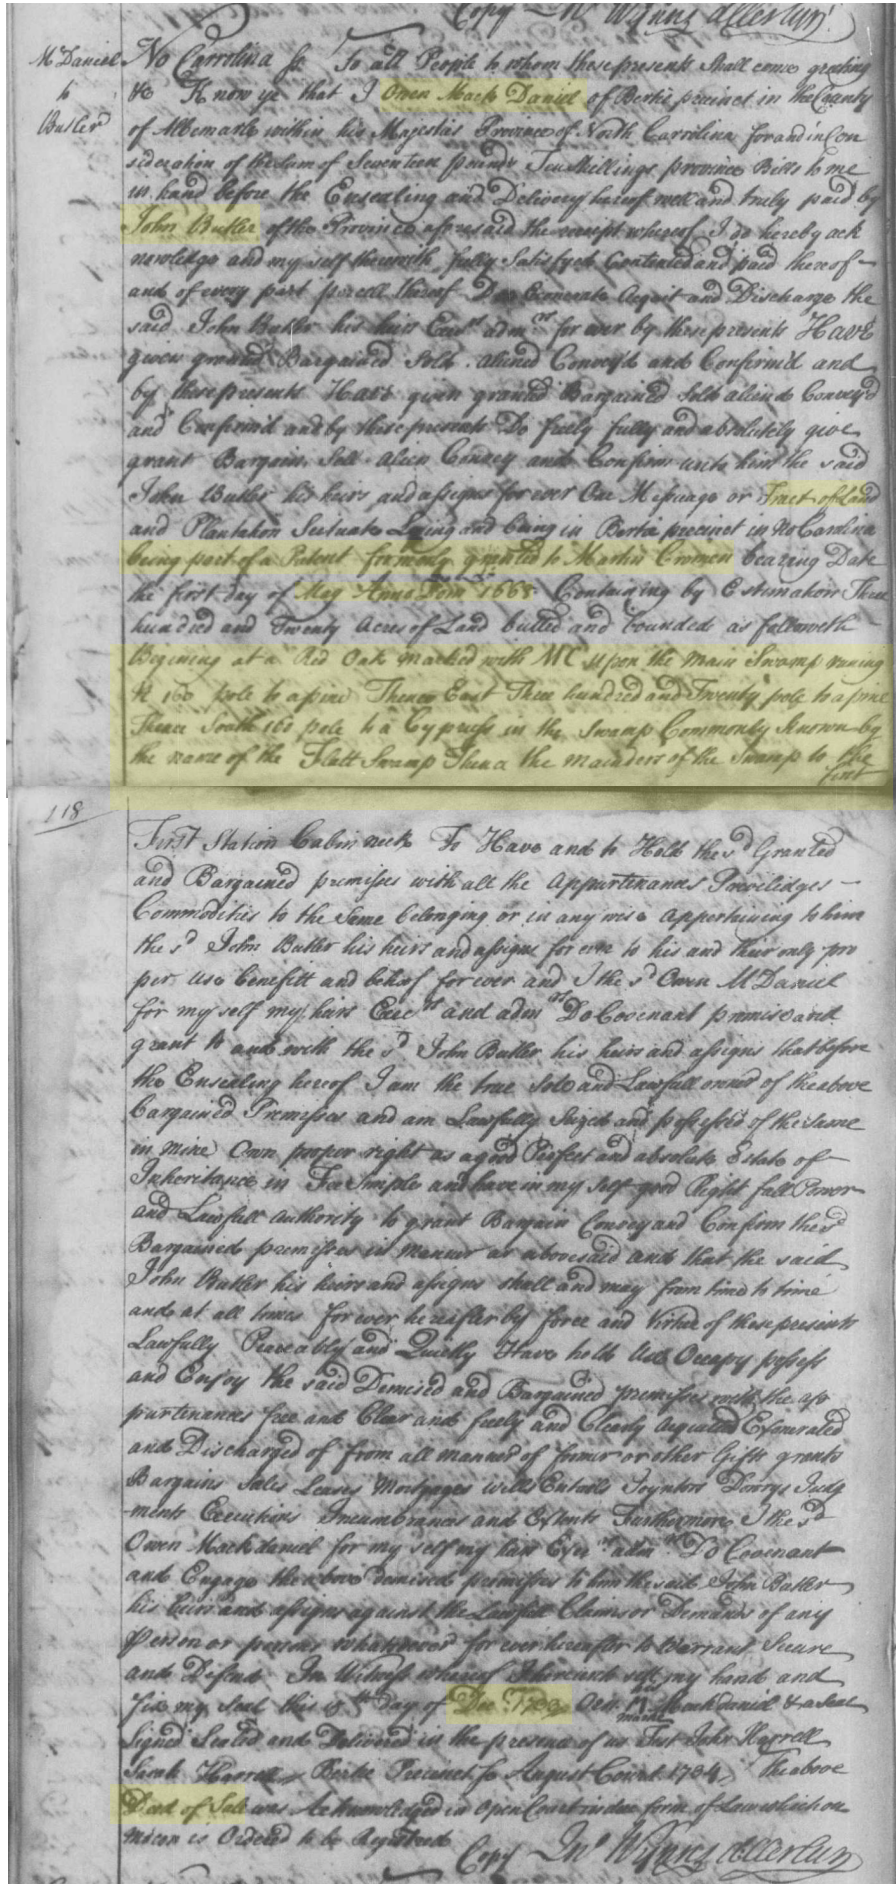 Copy Jno Wynns Allerlun
McDaniel
to
Butler
No Carrolina Ss To all People to whom these presents Shall come greeting
&c Know ye that I Owen Mack Daniel of Bertie precinct in the County
of Albemarle within his Majesties Province of North Carrolina for and in Con
sideration of the Sum of Seventeen pounds Ten Shillings province Bills to me
in hand before the Ensealing and Delivery hereof well and truly paid by
John Butler of the Province aforesaid the receipt whereof I do hereby ack
nowledge and my self therewith fully Satisfyed Contented and paid thereof
and of every part parcell thereof Do Exonerate Acquit and Discharge the
said John Butler his heirs Exers admrs for ever by these presents Have
given granted Bargained Sold aliened Convey'd and Confirm'd and
by these presents Have given granted Bargained Sold aliened Convey'd
and Confirm'd and by these presents Do freely fully and absolutely give
grant Bargain Sell Alien Convey and Confirm unto him the said
John Butler his heirs and assigns for ever One Messuage or Tract of Land
and Plantation Scituate Lying and being in Bertie precinct in No Carolina
being part of a Patent formerly granted to Martin Cromen bearing Date
the first day of May Anno Dom 1668 Containing by Estimation Three
hundred and Twenty Acres of Land butted and bounded as followeth
Begining at a Red Oak marked with MC upon the main Swamp runing
N 160 pole to a pine Thence East Three hundred and Twenty pole to a pine
Thence South 160 pole to a Cypress in the Swamp Commonly Known by
the name of the Flatt Swamp Thence the meanders of the Swamp to the
first
118
First Station Cabin neck To Have and to Hold the sd Granted
and Bargained premisses with all the Appurtinances Priviledges
Commodities to the Same belonging or in any wise Appertaining to him
the sd John Butler his heirs and assigns for ever to his and their only pro
per use benefitt and behoof for ever and I the sd Owen McDaniel
for my self my heirs Exers and admrs Do Covenant promise and
grant to and with the sd John Butler his heirs and assigns that before
the Ensealing hereof I am the true Sole and Lawfull owner of the above
bargained Premisses and am Lawfully Seized and possessed of the same
in mine Own proper right as a good Perfect and absolute Estate of
Inheritance in Fee Simple and have in my self good Right full Power
and Lawfull Authority to grant Bargain Convey and Confirm the sd
Bargained premisses in manner as abovesaid and that the said
John Butler his heirs and assigns shall and may from time to time
and at all times for ever hereafter by force and Virtue of these presents
Lawfully Peaceably and Quietly Have hold Use Occupy possess
and Enjoy the said Demised and Bargained premisses with the ap
purtenances free and Clear and freely and Clearly Acquitted Exonerated
and Discharged of from all manner of former or other Gifts grants
Bargains Sales Leases Mortgages wills Entails Joynters Dowrys Judg
-ments Executions Incumbrances and Extents Furthermore I the sd
Owen Mackdaniel for my self my heirs Exers admrs Do Covenant
and Engage the above demised premisses to him the said John Butler
his heirs and assigns against the Lawfull Claims or Demands of any
Person or persons whatsoever for ever hereafter to Warrant Secure
and Defend In Witness whereof I hereunto sett my hand and
fix my Seal this day of Dec 1733 Owen M Mackdaniel & a Seal
Signed Sealed and Delivered in the presence of us Test John Harrell
Sarah Harrell Bertie Precinct Ss August Court 1734 The above
Deed of Sale was Acknowledged in Open Court in due form of Law which on
motion is Ordered to be Registred
Copy Jno Wynns